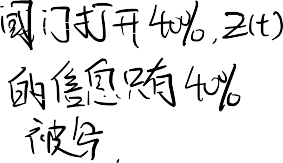 阀门打开40%,Z(t)
的信息只有40%
被写.